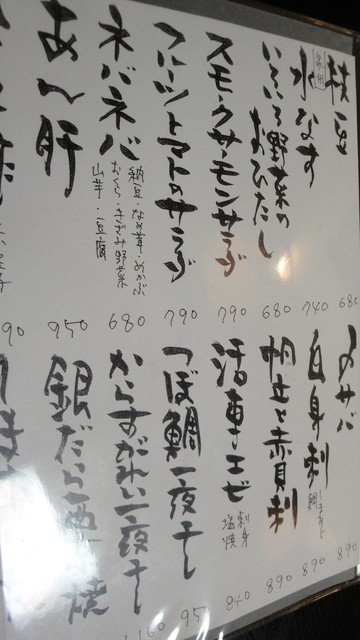 枝豆 680
泉州 水なす 740
いろいろ野菜のおひたし 680
スモークサーモンサラダ 790
フルーツトマトのサラダ 790
ネバネバ 680
納豆・なめ茸・めかぶ
おくら・きざみ野菜
山芋・豆腐
あん肝 950
〆サバ 890
白身刺 890
しまあじ
鯛
帆立と赤貝刺 890
活車エビ 840
刺身
塩焼
つぼ鯛一夜干し 95
からすがれい一夜干し 1160
銀だら西京焼